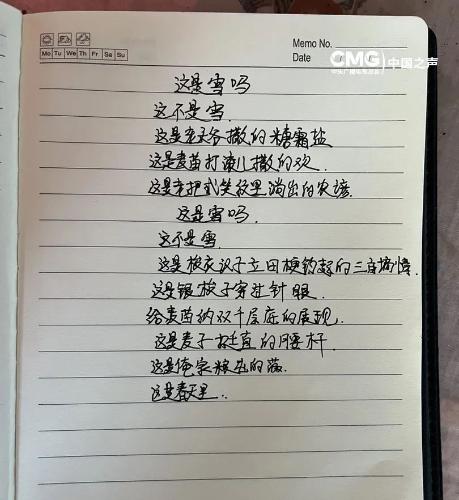 Mo Tu We Th Fr Sa Su
Memo No.
Date
CMG 中国之声
中央广播电视总台
这是雪吗
这不是雪.
这是老天爷撒的糖霜盐
这是麦苗打滚儿撒的欢.
这是老把式笑纹里淌出的农谚.
这是雪吗.
这不是雪.
这是按在立田梗的三床
这是银梭子穿过针眼.
给麦苗纳双千层底的
这是麦子挺直的腰杆.
这是俺家粮仓的
这是春天里..